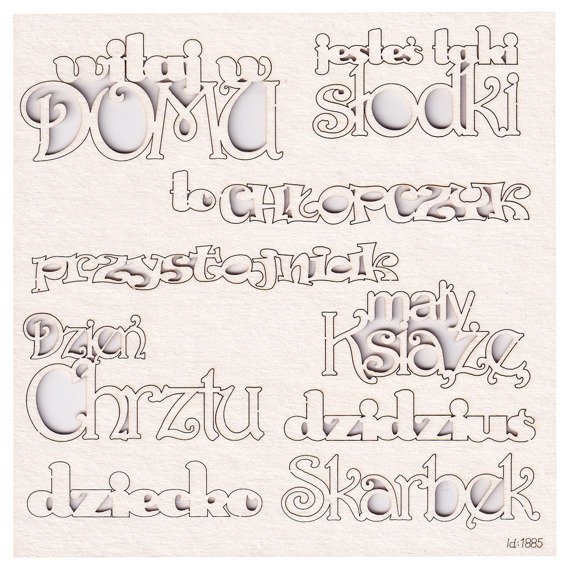 witaj w
DOMU
jesteś taki
słodki
to CHŁOPCZYK
przystojniak
Dzień
Chrztu
mały
Książę
dzidziuś
dziecko
Skarbek
Id:1885